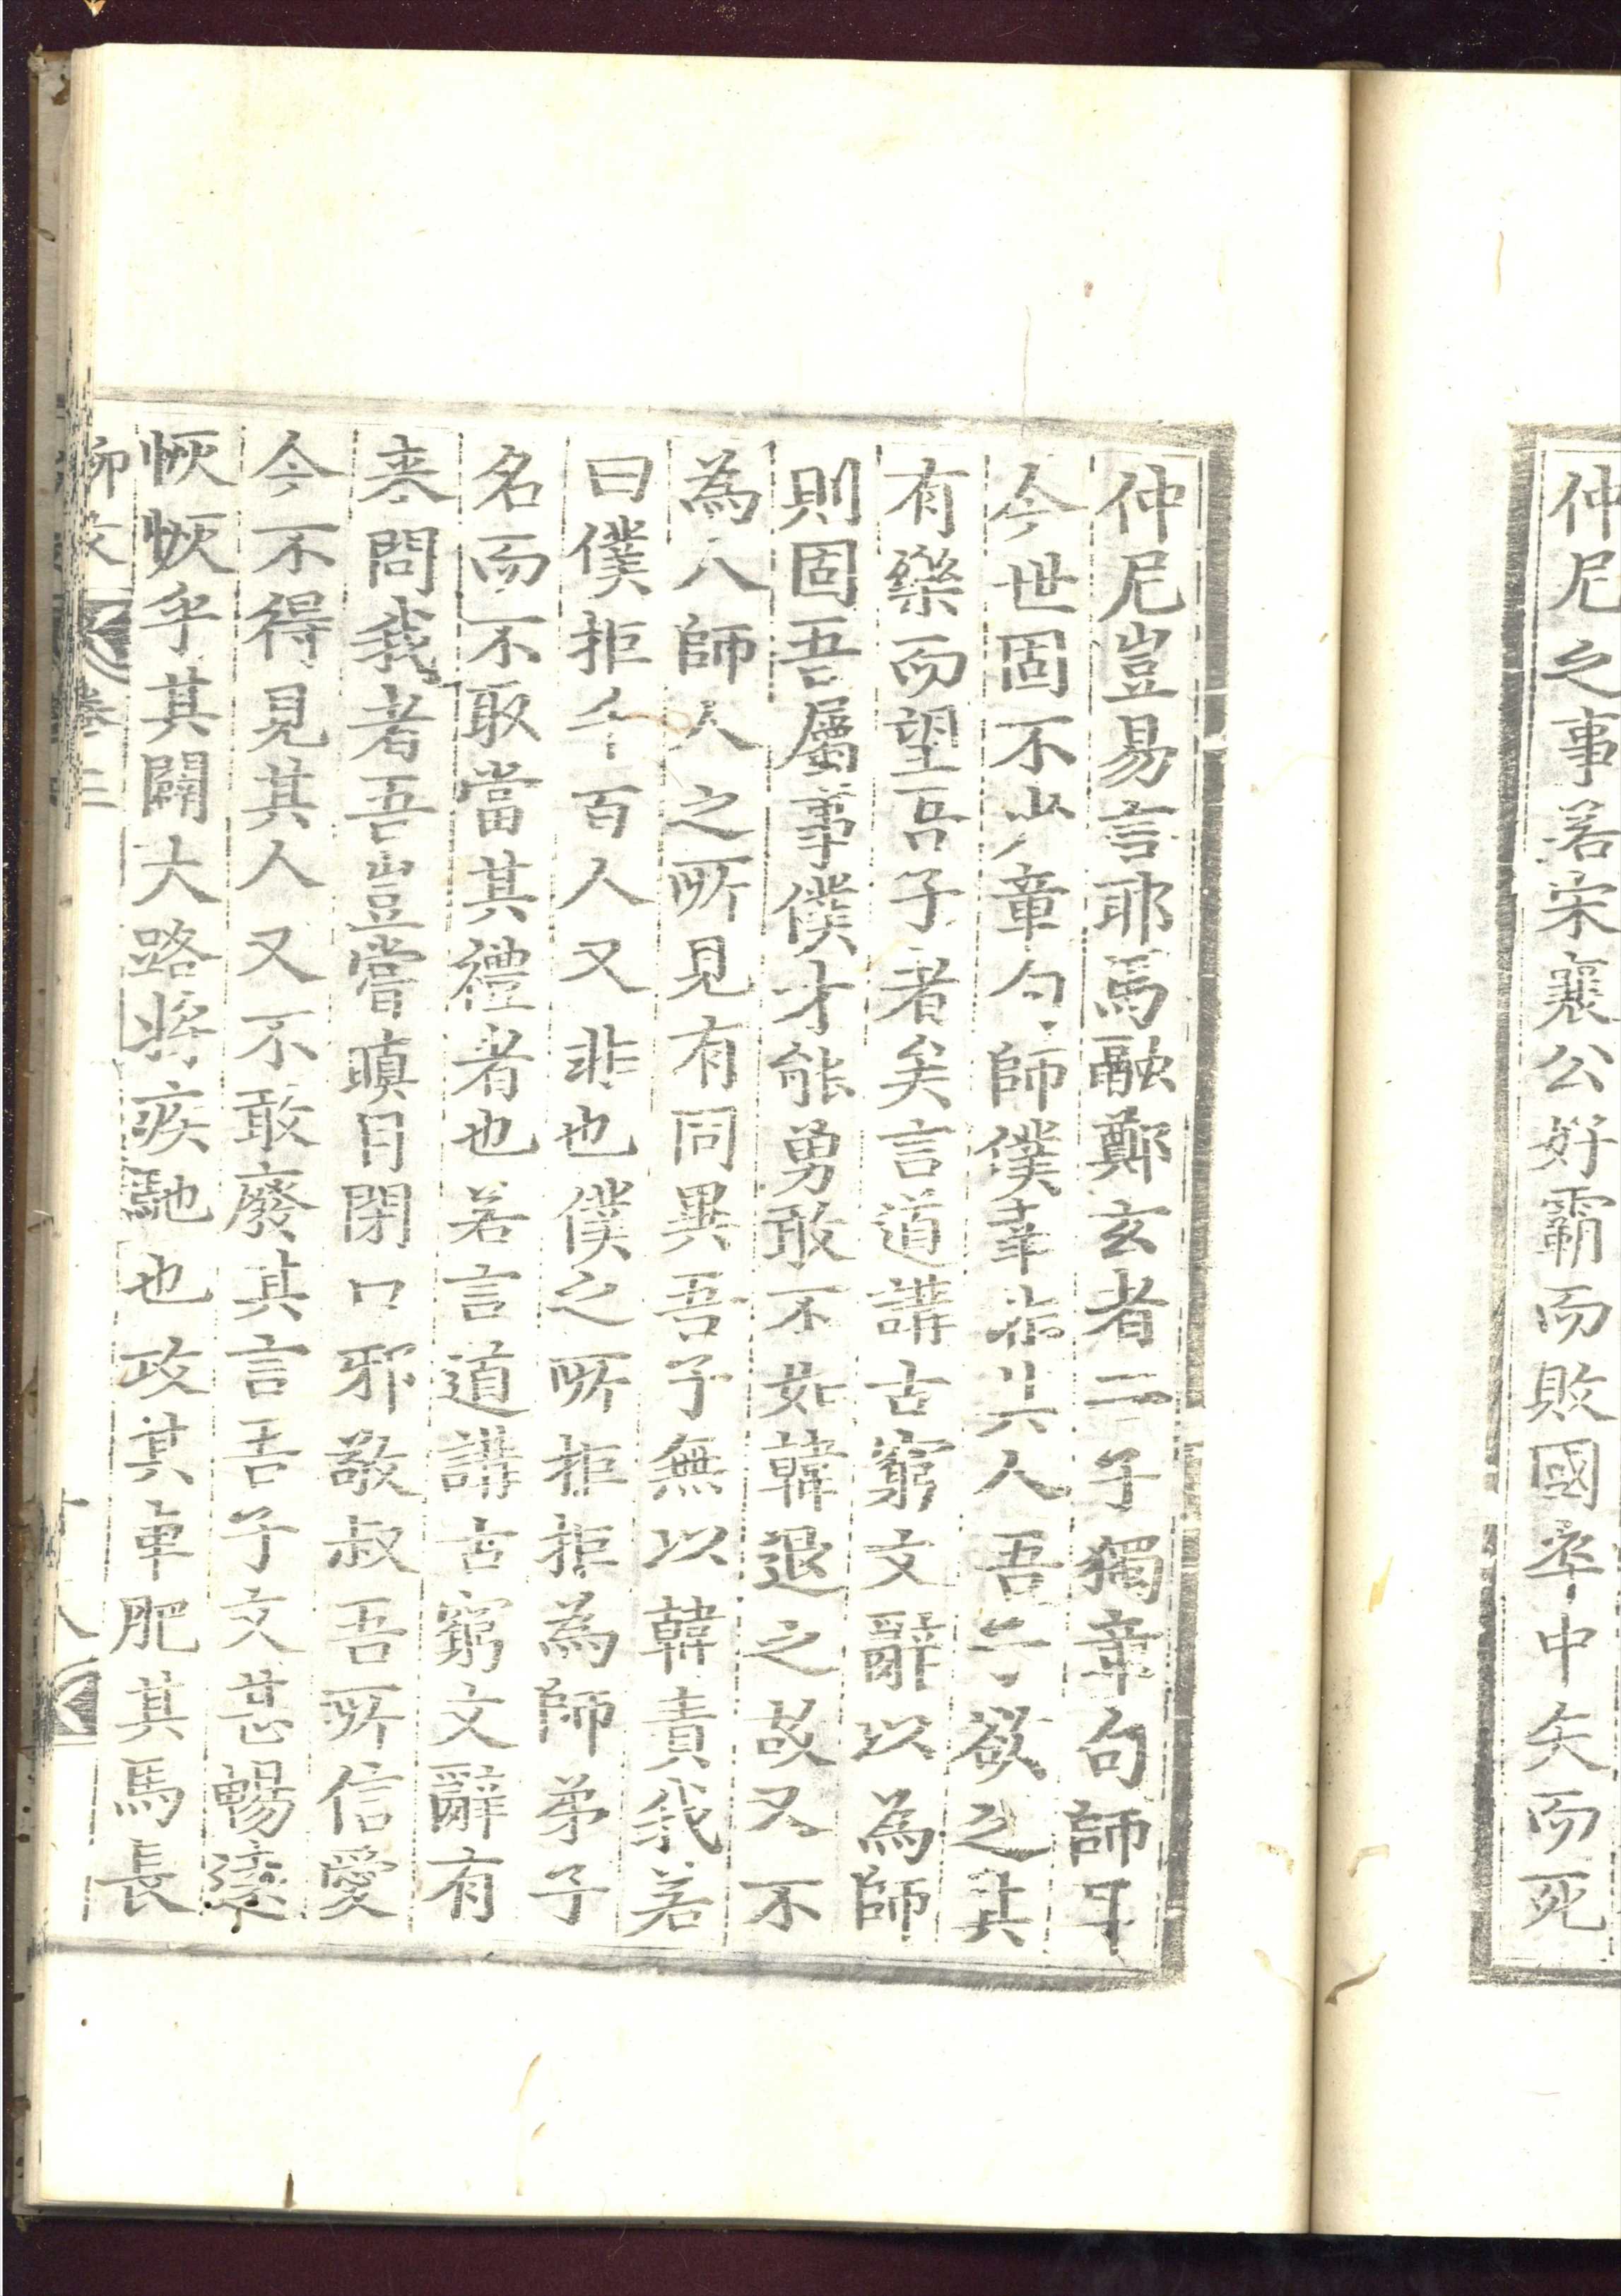 仲尼之事若宋襄公好霸而敗國卒中矢而死
仲尼豈易言耶馬融鄭玄者二子獨章句師耳
今世固不少章句師僕幸非其人吾子欲之其
有樂而望吾子者矣言道講古窮文辭以為師
則固吾屬事僕才能勇敢不如韓退之故又不
為人師人之所見有同異吾子無以韓責我若
曰僕拒千百人又非也僕之所拒拒為師弟子
名而不敢當其禮者也若言道講古窮文辭有
来問我者吾豈嘗瞋目閉口邪敬叔吾所信愛
今不得見其人又不敢廢其言吾子文甚暢遠
恢恢乎其闢大路將疾馳也攻其車肥其馬長
柳文 卷三 十八